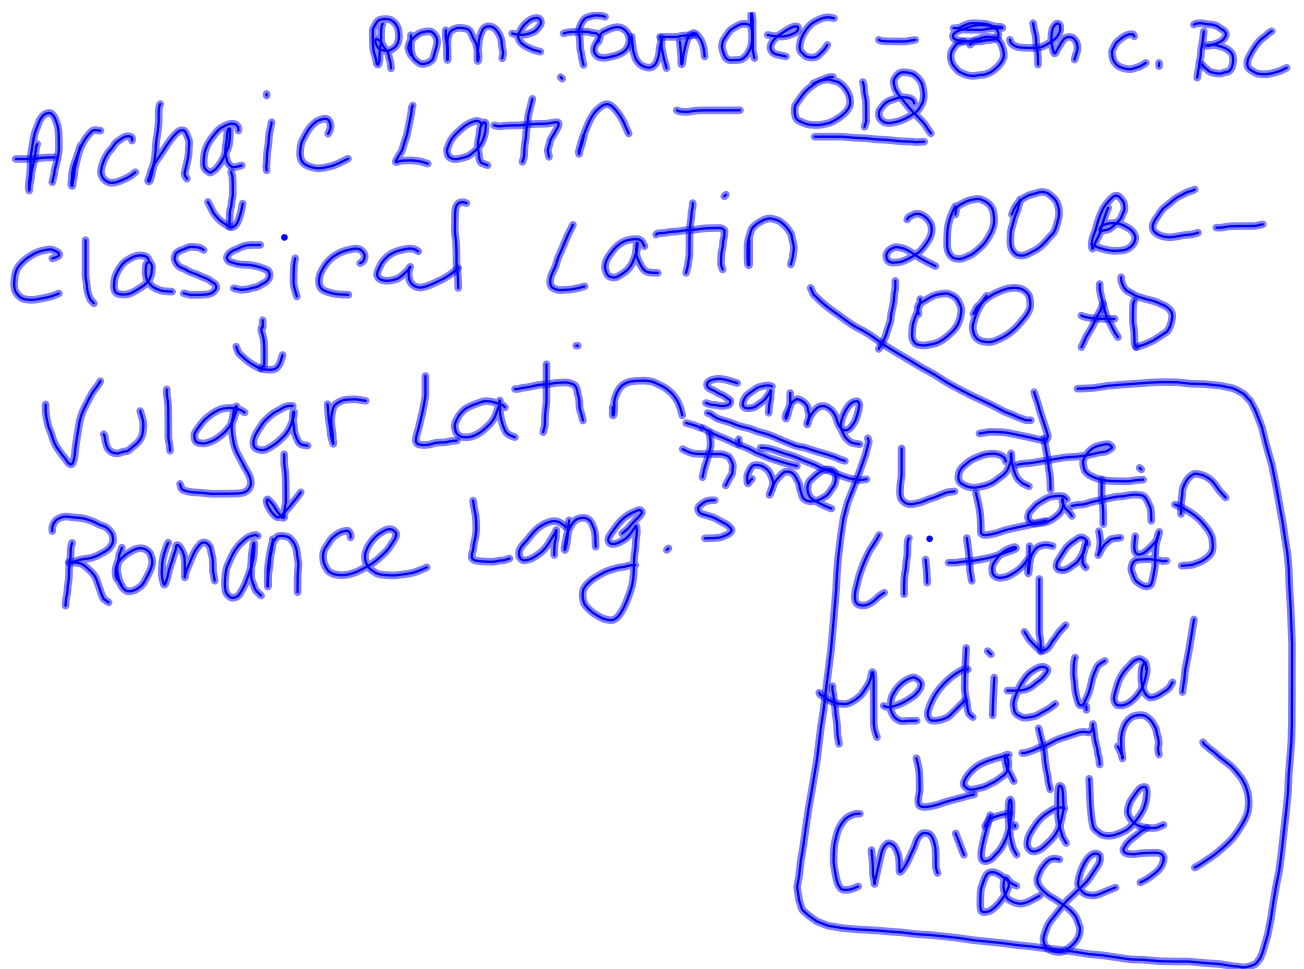 Rome founded - 8th c. BC
Archaic Latin - Old
Classical Latin 200 BC -
100 AD
Vulgar Latin same
time
Romance Lang.s
Late
Latin
(literary)
Medieval
Latin
(middle
ages)